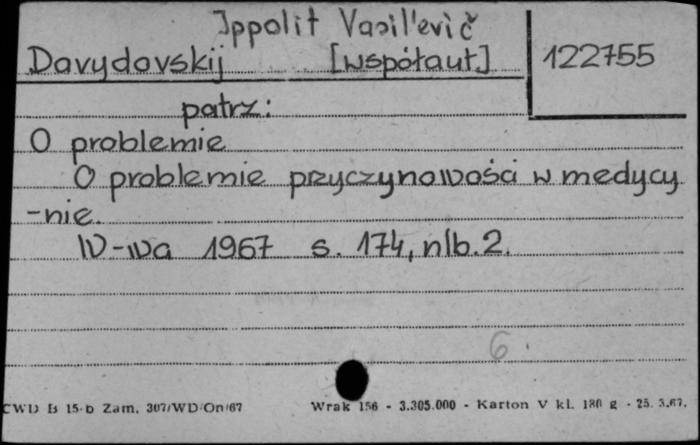 Ippolit Vasil'evič
Davydovskij [współaut]
122755
patrz:
O problemie
O problemie przyczynowości w medycy
-nie.
W-wa 1967 s. 174, nlb. 2.
6
CWD B 15-b Zam. 307/WD/On/67 Wrak 156 - 3.305.000 - Karton V kl. 180 g - 25. 3.67.